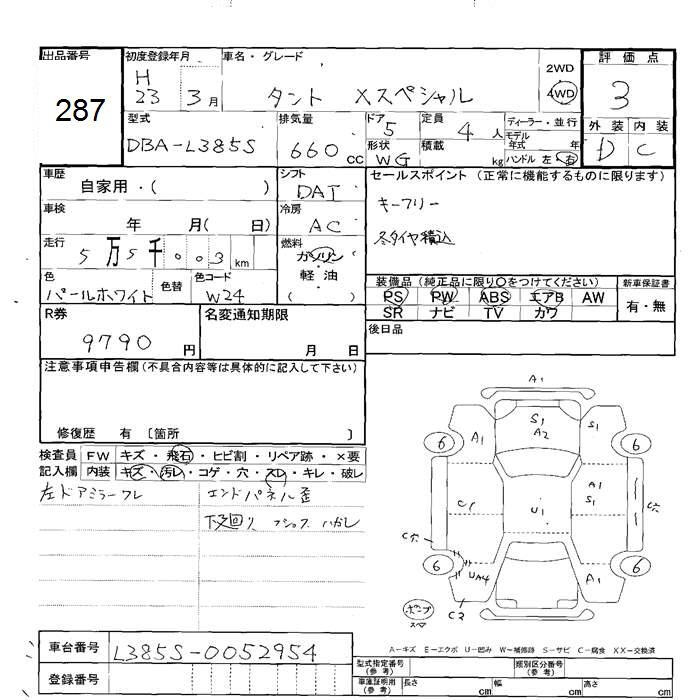 出品番号
287
初度登録年月
H
23 3月
車名・グレード
タント Xスペシャル
2WD
4WD
評価点
3
外装 内装
D C
型式
DBA-L385S
排気量
660 cc
ドア
5
形状
WG
定員
4 人
積載
kg
ディーラー・並行
モデル
年式 年
ハンドル 左 右
車歴
自家用・( )
シフト
DAT
セールスポイント (正常に機能するものに限ります)
キーフリー
冬タイヤ積込
車検
年 月( 日)
冷房
AC
走行
5万5千003 km
燃料
ガソリン
軽油
( )
色
パールホワイト
色替
色コード
W24
装備品(純正品に限り○をつけてください)
PS PW ABS エアB AW
SR ナビ TV カワ
新車保証書
有・無
R券
9790 円
名変通知期限
月 日
後日品
注意事項申告欄(不具合内容等は具体的に記入して下さい)
修復歴 有 〔箇所 〕
検査員 FW キズ・飛石・ヒビ割・リペア跡・×要
記入欄 内装 キズ・汚レ・コゲ・穴・スレ・キレ・破レ
左ドアミラーワレ エンドパネル歪
下廻り
A1
S1
A2
A1
S1
6
6
C1
A1
S1
U1
C穴
C穴
6
UA4
A1
6
C2
スペア
A-キズ E-エクボ U-凹み W-補修跡 S-サビ C-腐食 XX-交換済
車台番号
L385S-0052954
登録番号
型式指定番号
(参考)
類別区分番号
(参考)
車庫証明用
(参考)
長さ cm
幅 cm
高さ cm